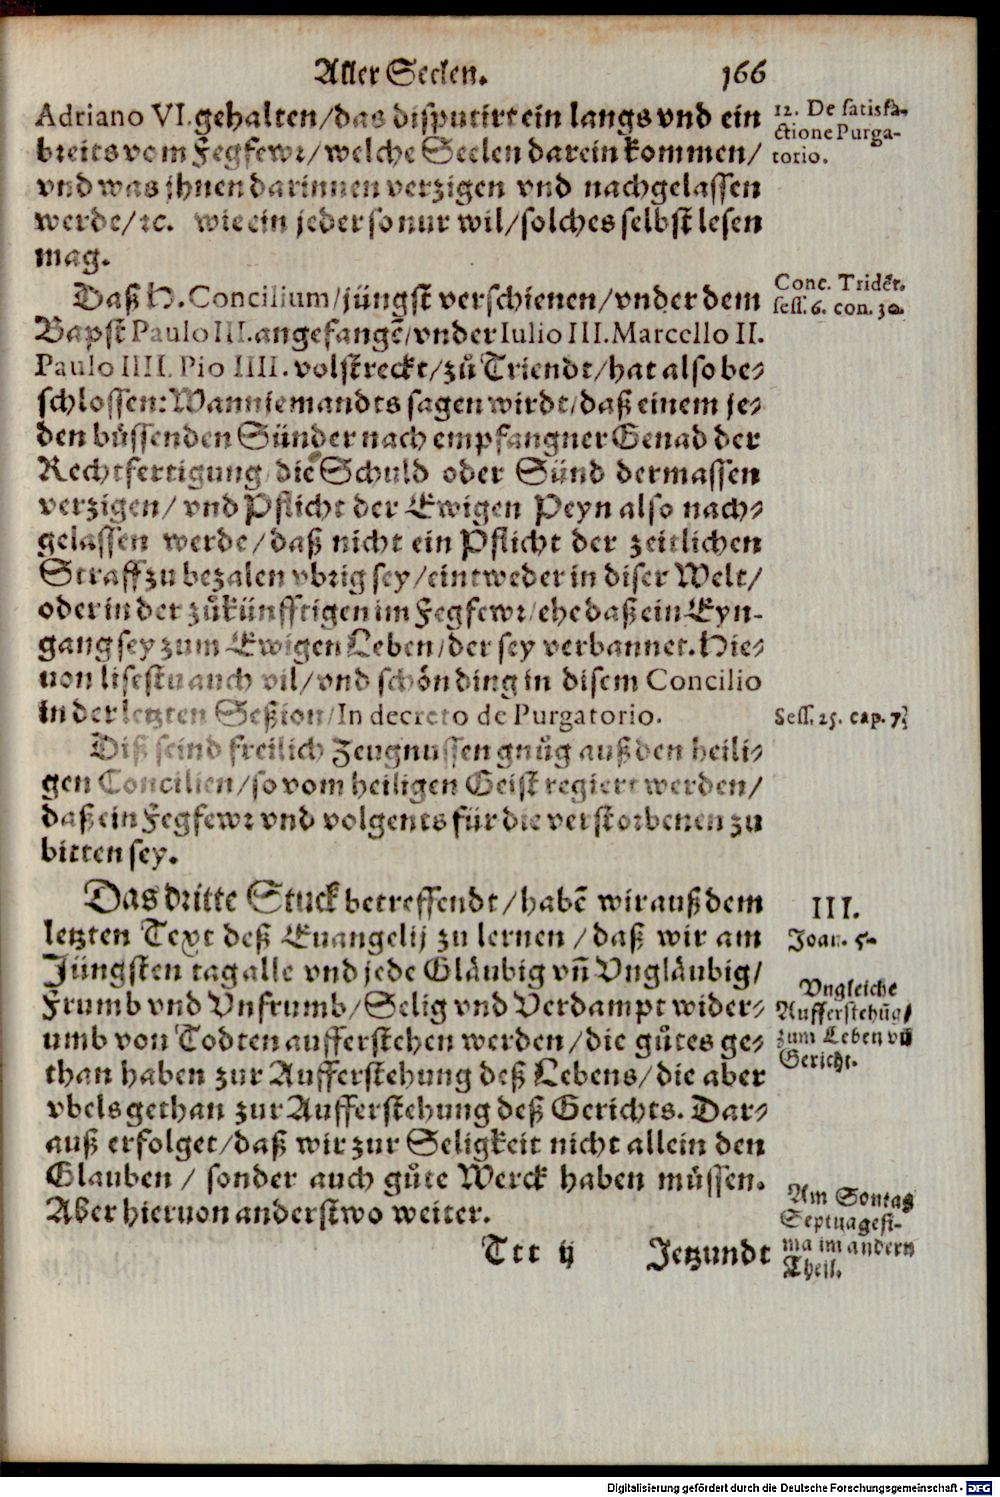 Aller Seelen. 166
Adriano VI. gehalten/das disputirt ein langs vnd ein
breits vom Fegfewr/welche Seelen darein kommen/
vnd was jhnen darinnen verzigen vnd nachgelassen
werde/ꝛc. wie ein jeder so nur wil/solches selbst lesen
mag.
12. De satisfa-
ctione Purga-
torio.
Daß H. Concilium/jüngst verschienen/vnder dem
Bapst Paulo III. angefangẽ/vnder Iulio III. Marcello II.
Paulo IIII. Pio IIII. volstreckt/zů Triendt/hat also be-
schlossen: Wann jemandts sagen wirdt/daß einem je-
den büssenden Sünder nach empfangner Genad der
Rechtfertigung/die Schuld oder Sünd dermassen
verzigen/vnd Pflicht der Ewigen Peyn also nach-
gelassen werde/daß nicht ein Pflicht der zeitlichen
Straff zu bezalen vbrig sey/eintweder in diser Welt/
oder in der zůkünfftigen im Fegfewr/ehe daß ein Eyn-
gang sey zum Ewigen Leben/der sey verbannet. Hie-
uon lisestu auch vil/vnd schön ding in disem Concilio
in der letzten Seßion/In decreto de Purgatorio.
Conc. Tridẽt.
sess. 6. con. 30.
Sess. 25. cap. 7.
Diß seind freilich Zeugnussen gnůg auß den heili-
gen Concilien/so vom heiligen Geist regiert werden/
daß ein Fegfewr vnd volgents für die verstorbenen zu
bitten sey.
Das dritte Stuck betreffendt/habẽ wir auß dem
letzten Text deß Euangelij zu lernen/daß wir am
Jüngsten tag alle vnd jede Gläubig vñ Vngläubig/
Frumb vnd Vnfrumb/Selig vnd Verdampt wider-
umb von Todten aufferstehen werden/die gůtes ge-
than haben zur Aufferstehung deß Lebens/die aber
vbels gethan zur Aufferstehung deß Gerichts. Dar-
auß erfolget/daß wir zur Seligkeit nicht allein den
Glauben/sonder auch gůte Werck haben müssen.
Aber hieruon anderstwo weiter.
III.
Joan. 5.
Vngleiche
Aufferstehũg/
zum Leben vñ
Gericht.
Am Sontag
Septuagesi-
ma im andern
Theil.
Ttt ij Jetzundt
Digitalisierung gefördert durch die Deutsche Forschungsgemeinschaft - DFG